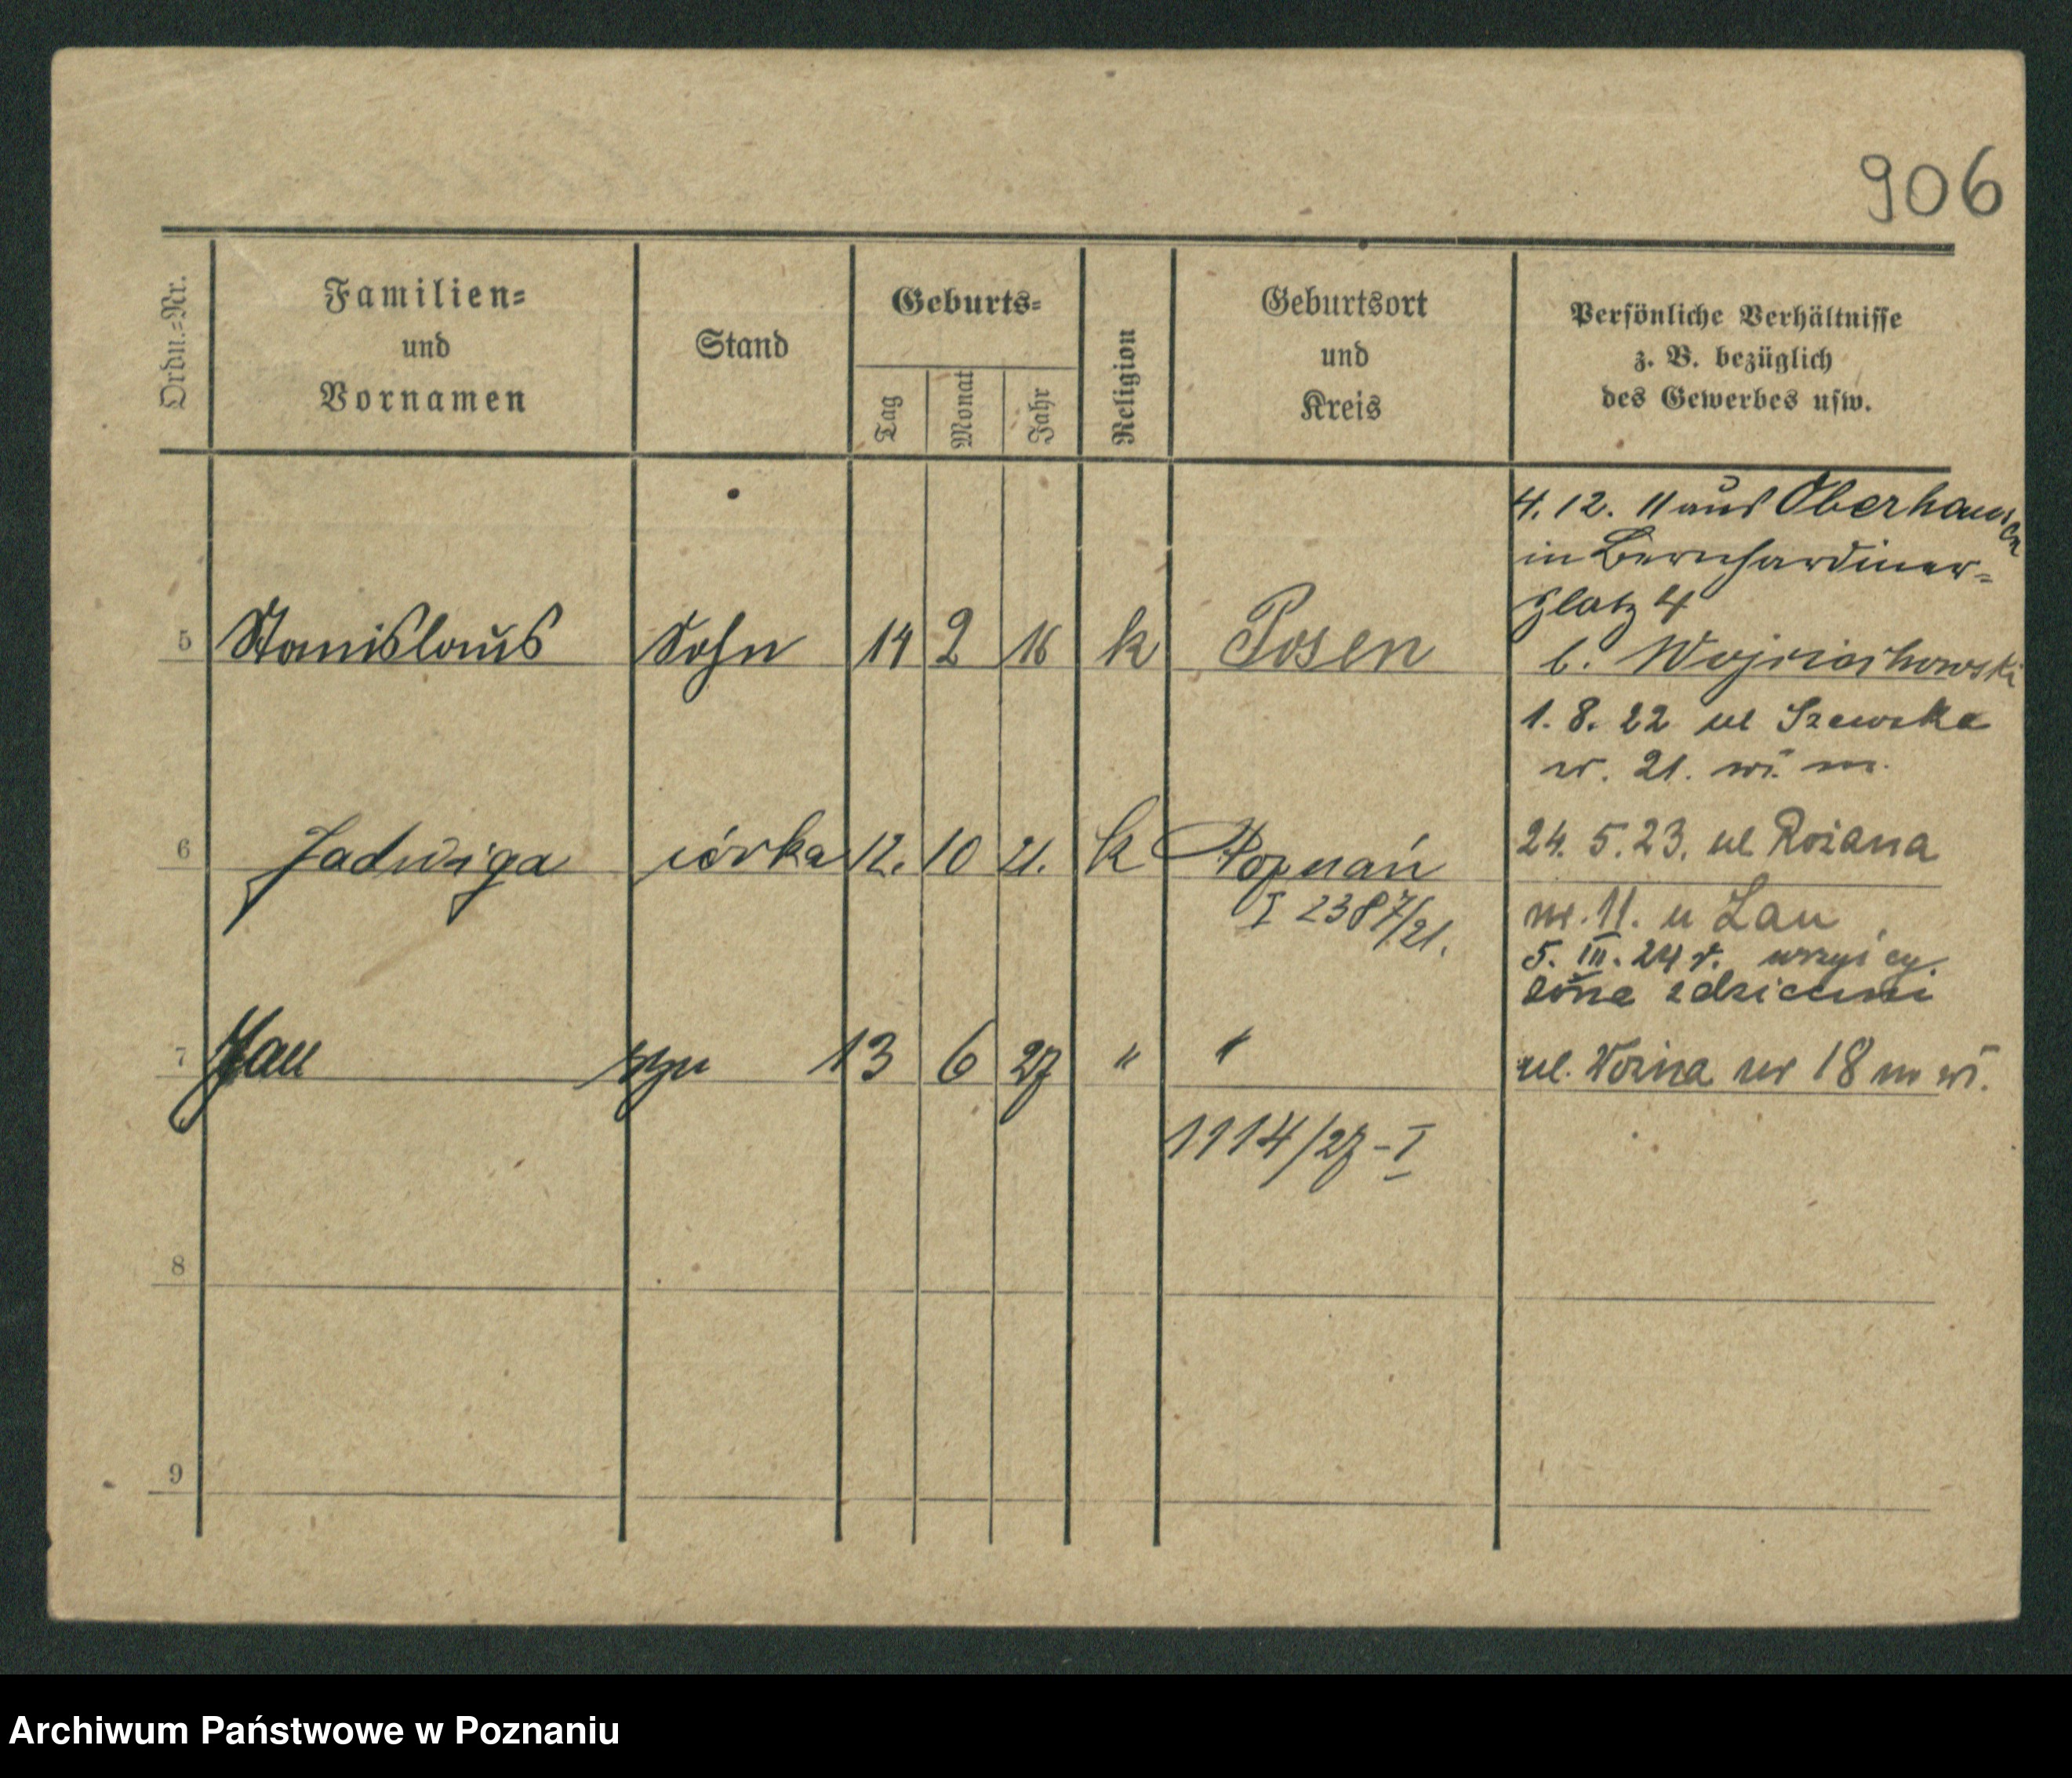 906
Ordn.=Nr.
Familien=
und
Vornamen
Stand
Geburts=
Tag
Monat
Jahr
Religion
Geburtsort
und
Kreis
Persönliche Verhältnisse
z. B. bezüglich
des Gewerbes usw.
4. 12. 11 aus Oberhausen
in Bernhardiner=
platz 4
5 Stanislaus Sohn 14 2 16 k Posen b. Wojciechowski
1. 8. 22 ul Szewska
nr. 21. wł. m.
6 Jadwiga córka 12. 10 21. k Poznań 24. 5. 23. ul Rożana
I 2387/21. nr. 11. u Lau
5. III. 24 r. wszyscy
żona z dziećmi
7 Jan syn 13 6 27 " " ul. Woźna nr 18 m wł.
1114/27-I
8
9
Archiwum Państwowe w Poznaniu